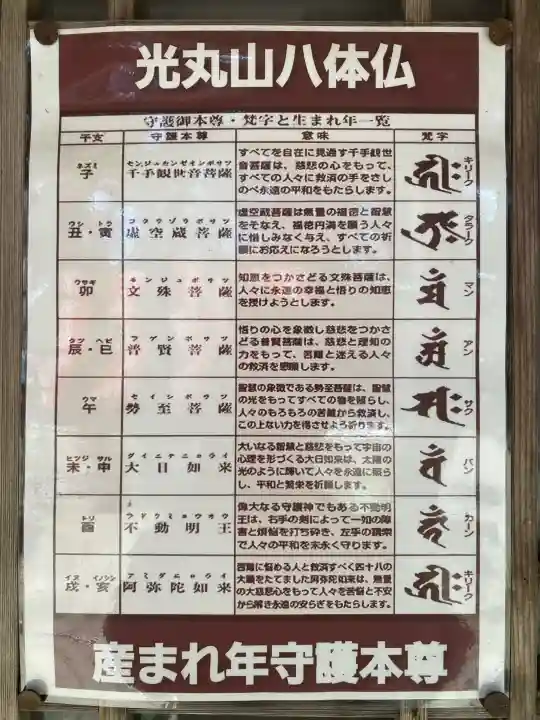 光丸山八体仏
守護御本尊・梵字と生まれ年一覧
干支
守護本尊
意味
梵字
ネズミ
子
センジュカンゼオンボサツ
千手観世音菩薩
すべてを自在に見過す千手観世
音菩薩は、慈悲の心をもって、
すべての人々に救済の手をさし
のべ永遠の平和をもたらします。
キリーク
ウシ トラ
丑・寅
コクウゾウボサツ
虚空蔵菩薩
虚空蔵菩薩は無量の福徳と智慧
をそなえ、福徳円満を願う人々
に惜しみなく与え、すべての祈
願にお応えになろうとします。
タラーク
ウサギ
卯
モンジュボサツ
文殊菩薩
知恵をつかさどる文殊菩薩は、
人々に永遠の幸福と悟りの知恵
を授けようとします。
マン
タツ ヘビ
辰・巳
フゲンボサツ
普賢菩薩
悟りの心を象徴し慈悲をつかさ
どる普賢菩薩は、慈悲と理知の
力をもって、苦難と迷える人々
の救済を懇願
アン
ウマ
午
セイシボサツ
勢至菩薩
智慧の象徴である勢至菩薩は、智慧
の光をもってすべての物を照らし、
人々のもろもろの苦難から救済し、
この上ない力を得させよう祈ります。
サク
ヒツジ サル
未・申
ダイニチニョライ
大日如来
大いなる智慧と慈悲をもって宇宙の
心理を形づくる大日如来は、太陽
の光のように輝いて人々を永遠に照ら
し、平和と繁栄を祈願します。
バン
トリ
酉
不動明王
偉大なる守護神でもある不動明
王は、右手の剣によって一如の障
害と煩悩を打ち砕き、左手の羂索
で人々の平和を末永く守ります。
カーン
イヌ イノシシ
戌・亥
アミダニョライ
阿弥陀如来
苦難に悩める人と救済すべく四十八の
大願をたてました阿弥陀如来は、無量
の大慈悲心をもって人々を苦悩と不安
から解き永遠の安らぎをもたらします。
キリーク
産まれ年守護本尊